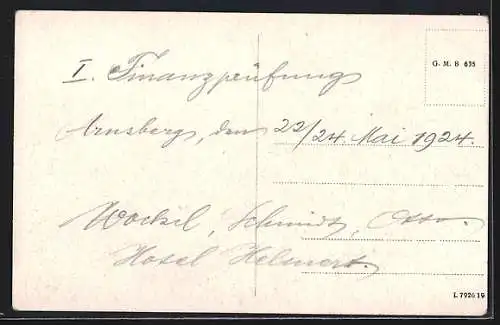 G. M. B 635
I. Finanzprüfung
Arnsberg, den 22/24. Mai 1924.
Wockel, Schmidt, Otto.
Hotel Helmert.
L 7926 19